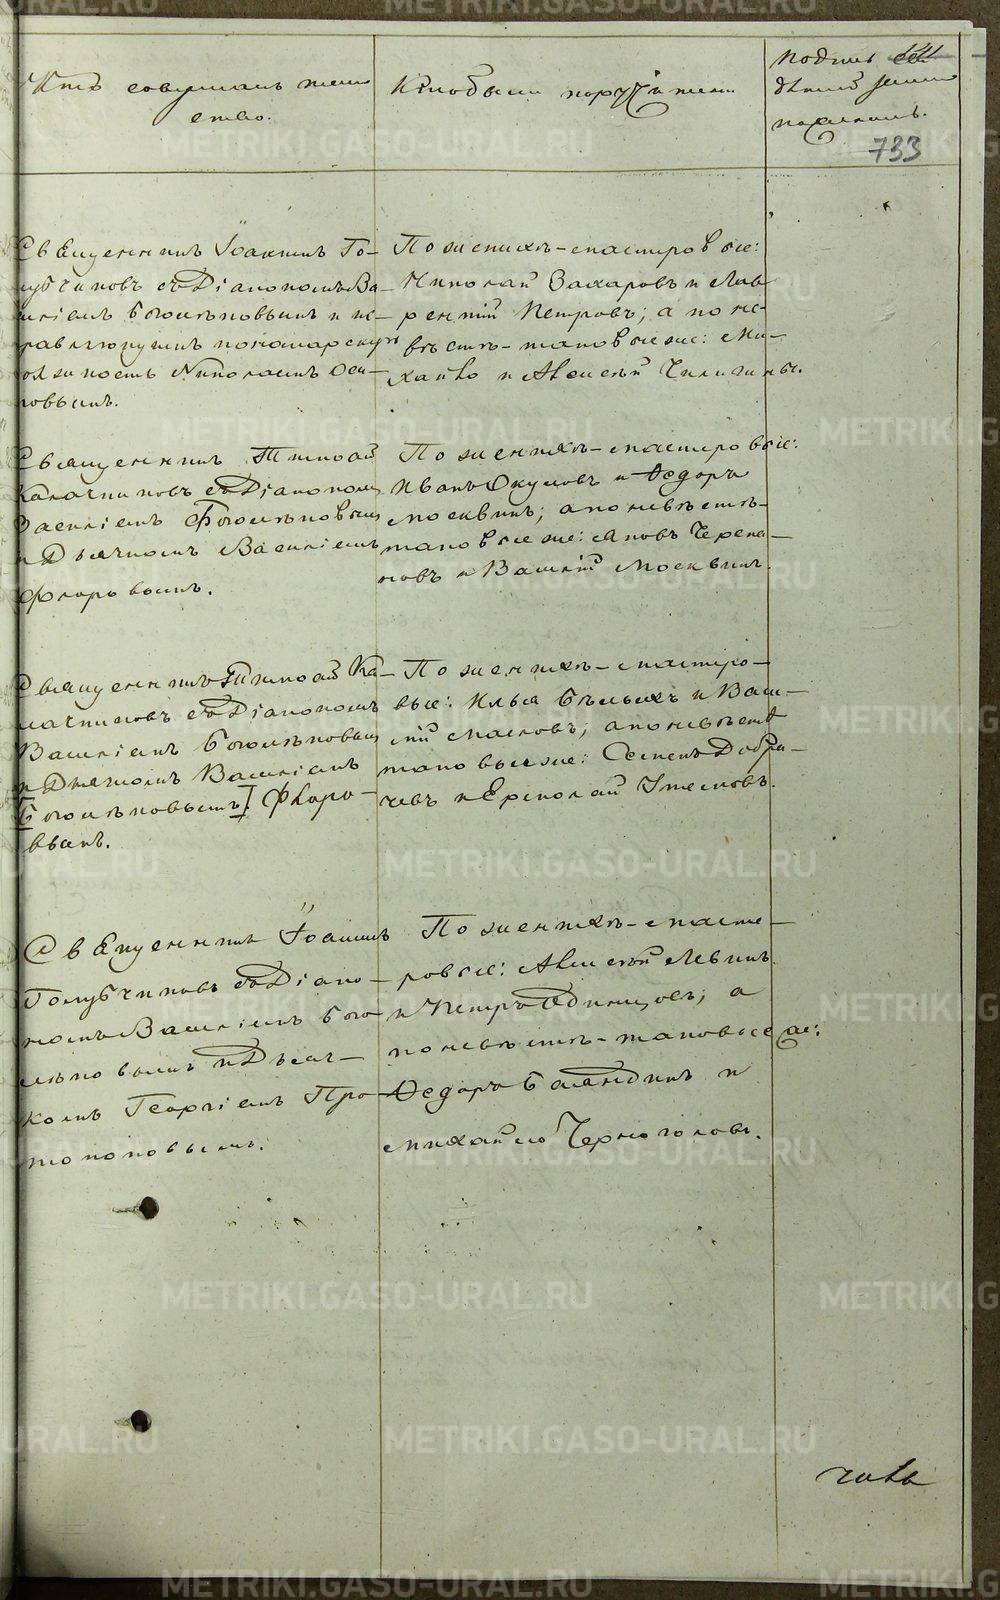 Кто совершалъ таин
ство.
Кто были поручители
подпись
дѣтелей
733
Священникъ Іоакимъ Го-
лубчиковъ съ Діакономъ Ва-
силіемъ Боголѣповымъ и ис-
правляющимъ пономарскую
должность Николаемъ Оси-
повымъ.
По женихѣ-мастеровые:
Николай Захаровъ и Лав
рентій Петровъ; а по не-
вѣстѣ-таковые же: Ми-
хайло и Алексѣй
Священникъ Тимофей
Калачниковъ съ Діакономъ
Василіемъ Боголѣповымъ
и Дьячкомъ Василіемъ
Флоровымъ.
По женихѣ-мастеровые:
Иванъ Окуловъ и Ѳедоръ
Москвинъ; а по невѣстѣ-
таковые же: Яковъ Черепа-
новъ и Василій Москвинъ.
Священникъ Тимофей Ка-
лачниковъ съ Діакономъ
Василіемъ Боголѣповымъ
и Дьячкомъ Василіемъ
Боголѣповымъ Флоро-
вымъ.
По женихѣ-мастеро-
вые: Илья Бѣлыхъ и Васи-
лій Масловъ; а по невѣстѣ
таковые же: Семенъ Добры-
чевъ и Ермолай Утесковъ.
Священникъ Іоакимъ
Голубчиковъ съ Діако-
номъ Василіемъ Бого-
лѣповымъ и Дьяч-
комъ Георгіемъ Про-
топоповымъ.
По женихѣ-масте-
ровые: Алексѣй Левинъ
и Петръ Одинцовъ; а
по невѣстѣ-таковые же:
Ѳедоръ Баландинъ и
Михайло Черноголовъ.
METRIKI.GASO-URAL.RU